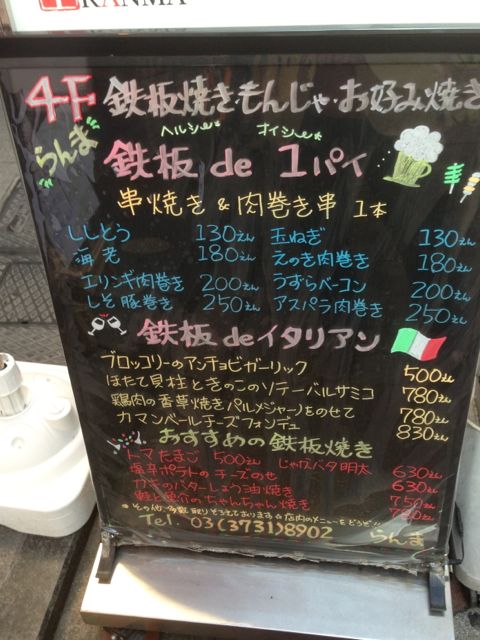 RANMA
4F 鉄板焼き・もんじゃ・お好み焼き
らんま
ヘルシー オイシー
鉄板 de 1パイ
串焼き & 肉巻き串 1本
ししとう 130えん 玉ねぎ 130えん
海老 180えん えのき肉巻き 180えん
エリンギ肉巻き 200えん うずらベーコン 200えん
しそ豚巻き 250えん アスパラ肉巻き 250えん
鉄板 de イタリアン
ブロッコリーのアンチョビガーリック 500えん
ほたて貝柱ときのこのソテーバルサミコ 780えん
鶏肉の香草焼きパルメジャーノをのせて 780えん
カマンベールチーズフォンデュ 830えん
おすすめの鉄板焼き
トマたまご 500えん じゃがバタ明太 630えん
塩辛ポテトのチーズのせ 630えん
カキのバターしょうゆ焼き 750えん
鮭と魚介のちゃんちゃん焼き
※その他 多数取りそろえております 店内のメニューをどうぞ!!
Tel. 03(3731)8902 らんま